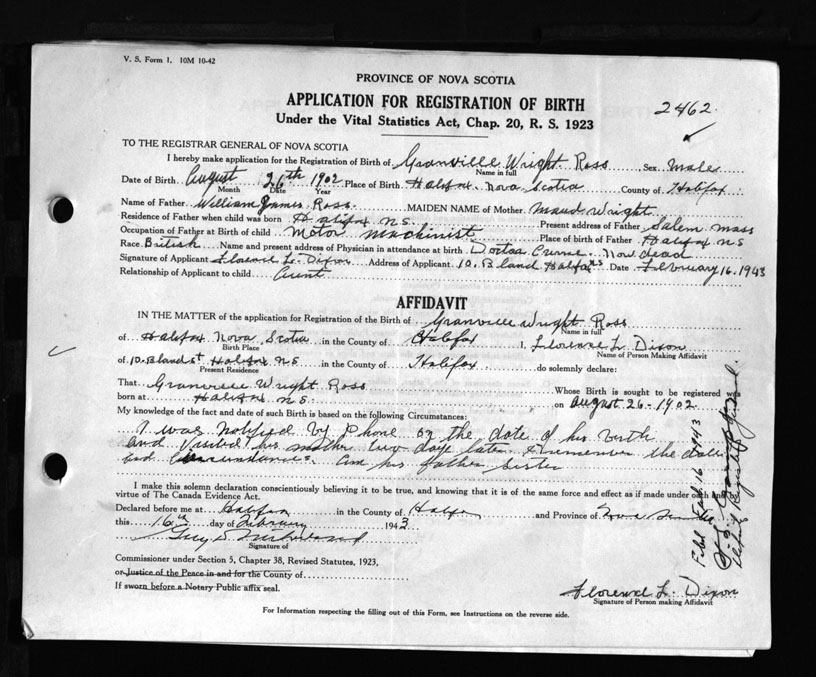 V. S. Form 1. 10M 10-42
PROVINCE OF NOVA SCOTIA
APPLICATION FOR REGISTRATION OF BIRTH
2462.
Under the Vital Statistics Act, Chap. 20, R. S. 1923
TO THE REGISTRAR GENERAL OF NOVA SCOTIA
I hereby make application for the Registration of Birth of Granville Wright Ross Sex Male
Name in full
Date of Birth August 26th 1902 Place of Birth Halifax Nova Scotia County of Halifax
Month Date Year
Name of Father William James Ross MAIDEN NAME of Mother Maud Wright
Residence of Father when child was born Halifax N.S. Present address of Father Salem Mass
Occupation of Father at Birth of child Motor Machinist Place of birth of Father Halifax NS
Race British Name and present address of Physician in attendance at birth Now dead
Signature of Applicant Florence L. Dixon Address of Applicant 10 Bland Halifax NS Date February 16. 1943
Relationship of Applicant to child Aunt
AFFIDAVIT
IN THE MATTER of the application for Registration of the Birth of Granville Wright Ross
Name in full
of Halifax Nova Scotia in the County of Halifax I, Florence L Dixon
Birth Place Name of Person Making Affidavit
of 10 Bland St Halifax NS in the County of Halifax do solemnly declare:
Present Residence
That Granville Wright Ross Whose Birth is sought to be registered was
born at Halifax NS. on August 26-1902
My knowledge of the fact and date of such Birth is based on the following Circumstances:
I was notified by Phone on the date of his birth
and Visited his mother two days later & remember the date
and Circumstances. am his father Sister
I make this solemn declaration conscientiously believing it to be true, and knowing that it is of the same force and effect as if made under oath and by
virtue of The Canada Evidence Act.
Declared before me at Halifax in the County of Halifax and Province of Nova Scotia
this 16th day of February 1943
Guy S.
Signature of
Commissioner under Section 5, Chapter 38, Revised Statutes, 1923,
or Justice of the Peace in and for the County of
If sworn before a Notary Public affix seal.
Florence L. Dixon
Signature of Person making Affidavit
For Information respecting the filling out of this Form, see Instructions on the reverse side.
Filed Feb 16 1943